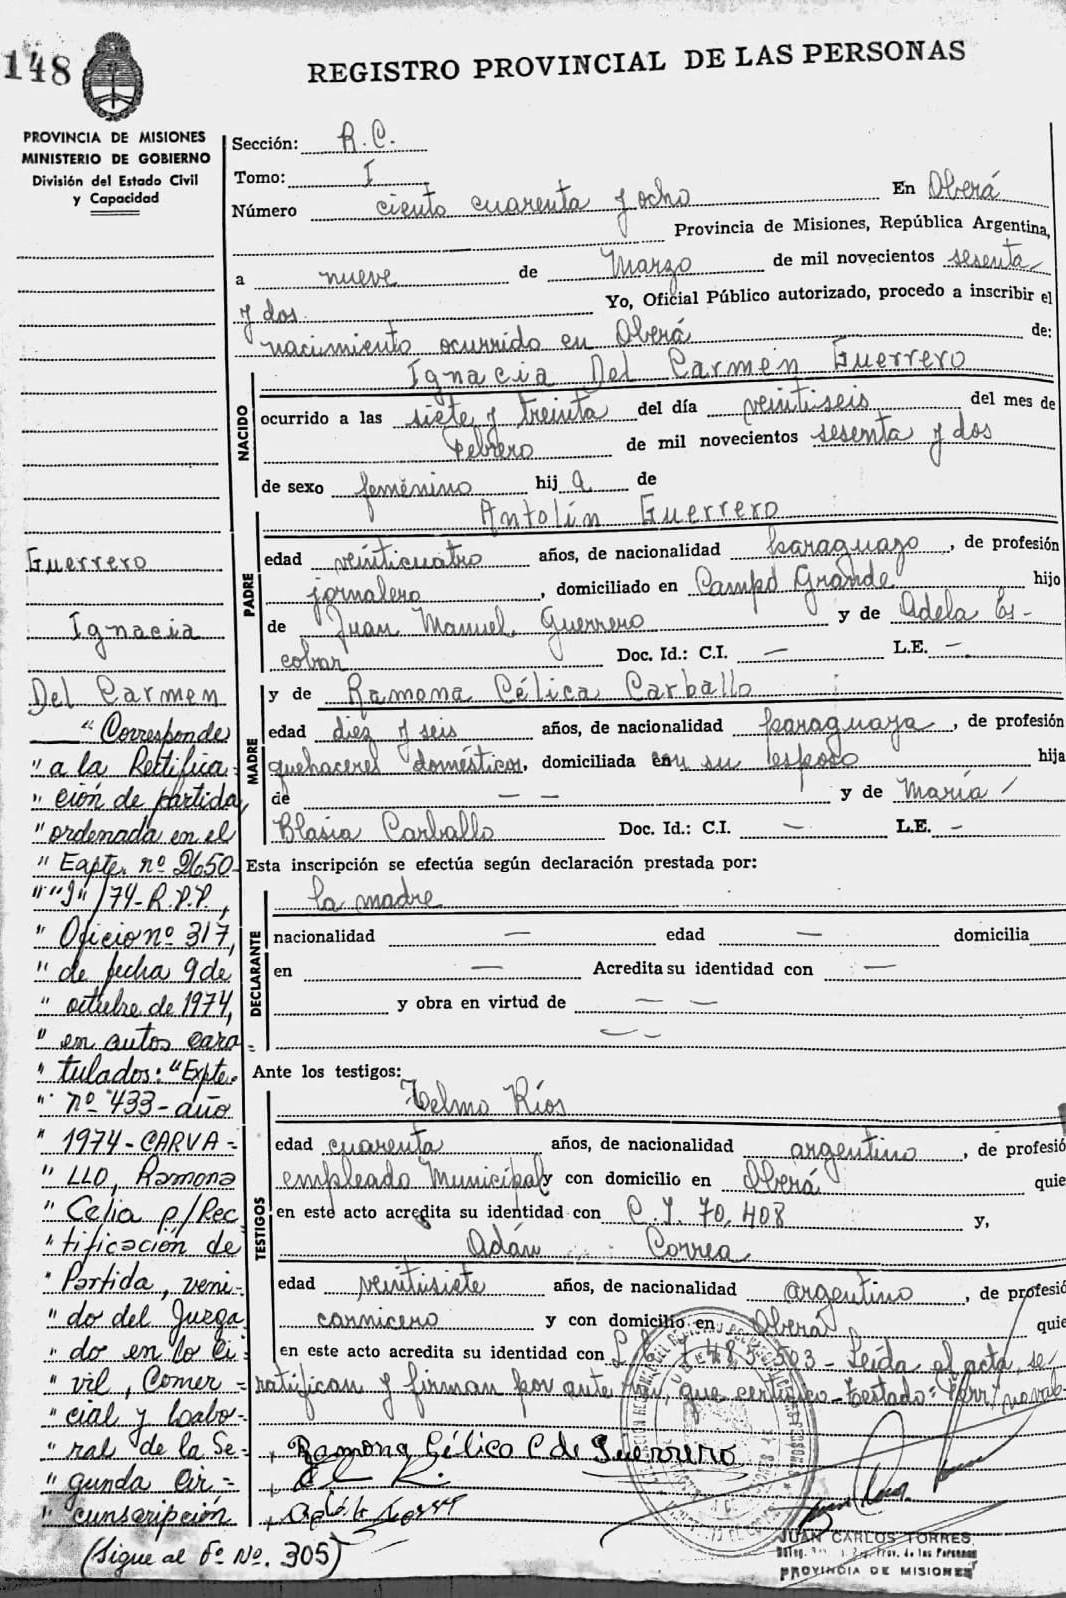 148
REGISTRO PROVINCIAL DE LAS PERSONAS
PROVINCIA DE MISIONES
MINISTERIO DE GOBIERNO
División del Estado Civil
y Capacidad
Sección: R.C.
Tomo: I
Número ciento cuarenta y ocho En Oberá
Provincia de Misiones, República Argentina,
a nueve de Marzo de mil novecientos sesenta
y dos Yo, Oficial Público autorizado, procedo a inscribir el
nacimiento ocurrido en Oberá de:
NACIDO
Ignacia Del Carmen Guerrero
ocurrido a las siete y treinta del día veintiseis del mes de
Febrero de mil novecientos sesenta y dos
de sexo femenino hij a de
PADRE
Antolín Guerrero
edad veinticuatro años, de nacionalidad paraguayo, de profesión
jornalero, domiciliado en Campo Grande hijo
de Juan Manuel Guerrero y de Adela Es-
cobar Doc. Id.: C.I. — L.E. —
MADRE
y de Ramona Célica Carballo
edad diez y seis años, de nacionalidad paraguaya, de profesión
quehaceres domésticos, domiciliada con su esposo hija
de — — y de María
Blasia Carballo Doc. Id.: C.I. — L.E. —
Esta inscripción se efectúa según declaración prestada por:
DECLARANTE
la madre
nacionalidad — edad — domicilia
en — Acredita su identidad con —
y obra en virtud de — —
— —
Ante los testigos:
TESTIGOS
Telmo Ríos
edad cuarenta años, de nacionalidad argentino, de profesió
empleado Municipal y con domicilio en Oberá quie
en este acto acredita su identidad con C.I. 70,408 y,
Adán Correa
edad veintisiete años, de nacionalidad argentino, de profesió
carnicero y con domicilio en Oberá quie
en este acto acredita su identidad con L.E. 7.483.503 - Leída el acta, se
ratifican y firman por ante mi, que certifico - Testado:
Ramona Célica C de Guerrero
JUAN CARLOS TORRES
PROVINCIA DE MISIONES
Guerrero
Ignacia
Del Carmen
" Corresponde
" a la Rectifica-
" ción de partida,
" ordenada en el
" Expte. nº 2650-
" "J" /74-R.P.P,
" Oficio nº 317,
" de fecha 9 de
" octubre de 1974,
" en autos cara-
" tulados: "Expte.
" nº 433-año
" 1974-CARVA-
" LLO, Ramona
" Celia p/Rec
" tificación de
" Partida, veni-
" do del Juzga
" do en lo Ci-
" vil, Comer-
" cial y Labo-
" ral de la Se-
" gunda Cir-
" cunscripción
(Sigue al Fº Nº. 305)